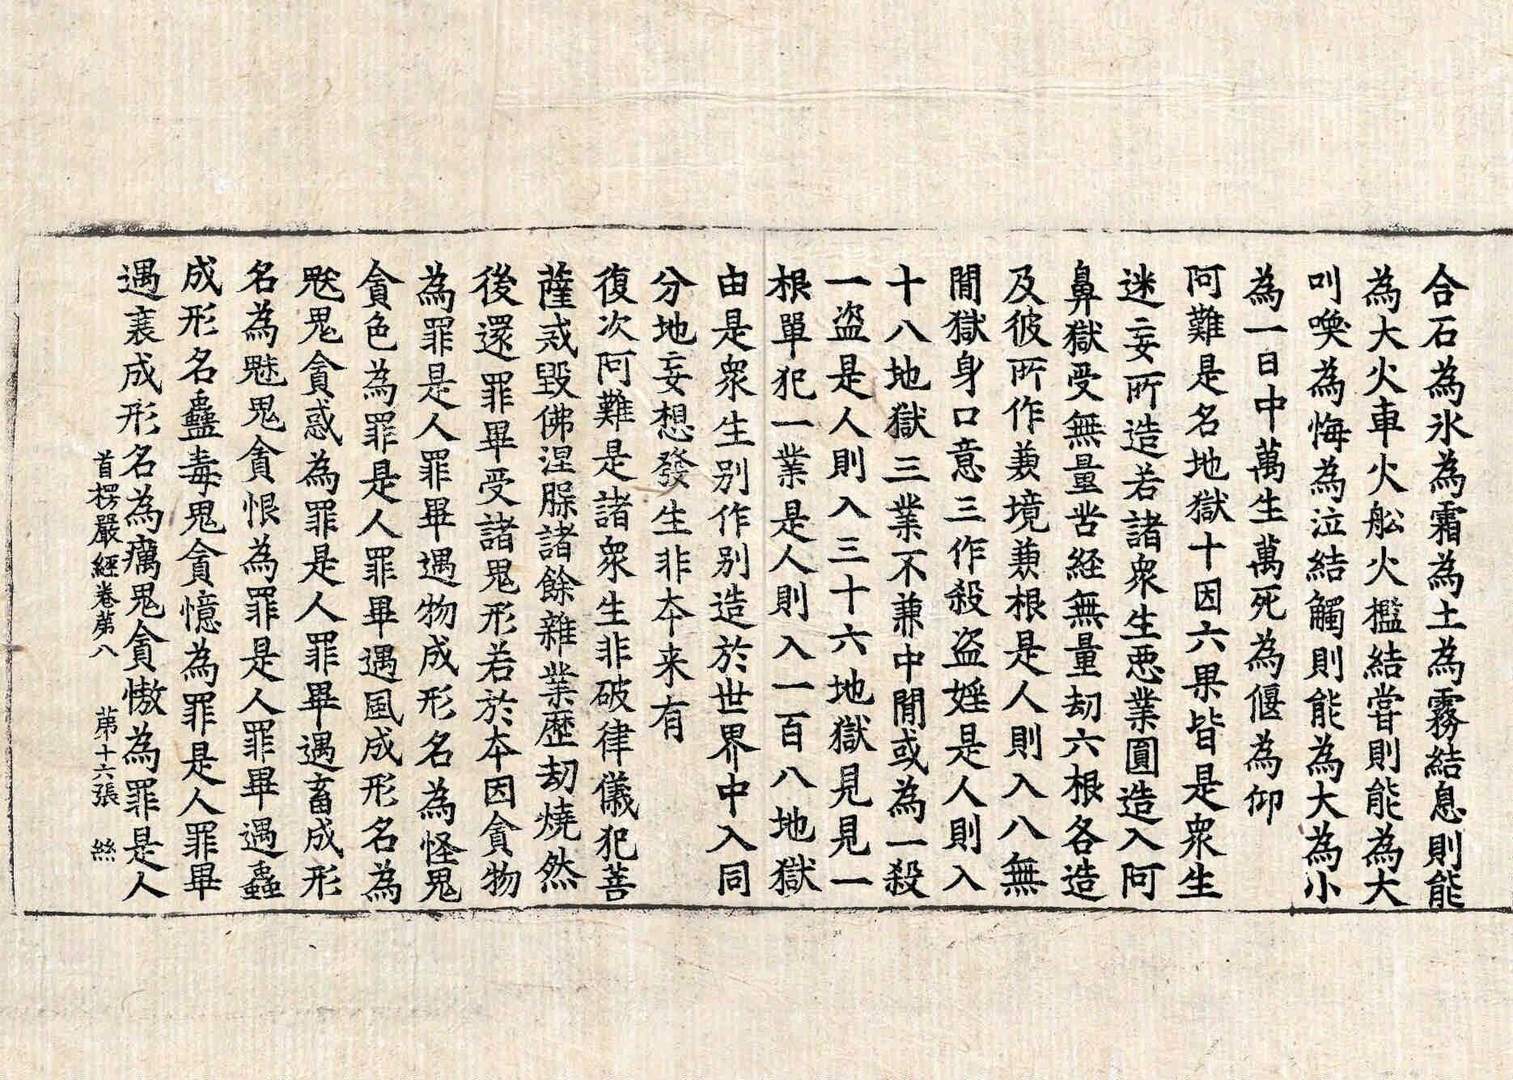 合石為氷為霜為土為霧結息則能
為大火車火舩火檻結嘗則能為大
叫喚為悔為泣結觸則能為大為小
為一日中萬生萬死為偃為仰
阿難是名地獄十因六果皆是衆生
迷妄所造若諸衆生惡業圓造入阿
鼻獄受無量苦経無量劫六根各造
及彼所作兼境兼根是人則入八無
間獄身口意三作殺盗婬是人則入
十八地獄三業不兼中間或為一殺
一盗是人則入三十六地獄見見一
根單犯一業是人則入一百八地獄
由是衆生别作别造於世界中入同
分地妄想發生非夲来有
復次阿難是諸衆生非破律儀犯菩
薩戒毀佛涅脲諸餘雜業歷劫燒然
後還罪畢受諸鬼形若於夲因貪物
為罪是人罪畢遇物成形名為怪鬼
貪色為罪是人罪畢遇風成形名為
鬾鬼貪惑為罪是人罪畢遇畜成形
名為魅鬼貪恨為罪是人罪畢遇蟲
成形名蠱毒鬼貪憶為罪是人罪畢
遇衰成形名為癘鬼貪慠為罪是人
首楞嚴經卷第八　第十六張　絲